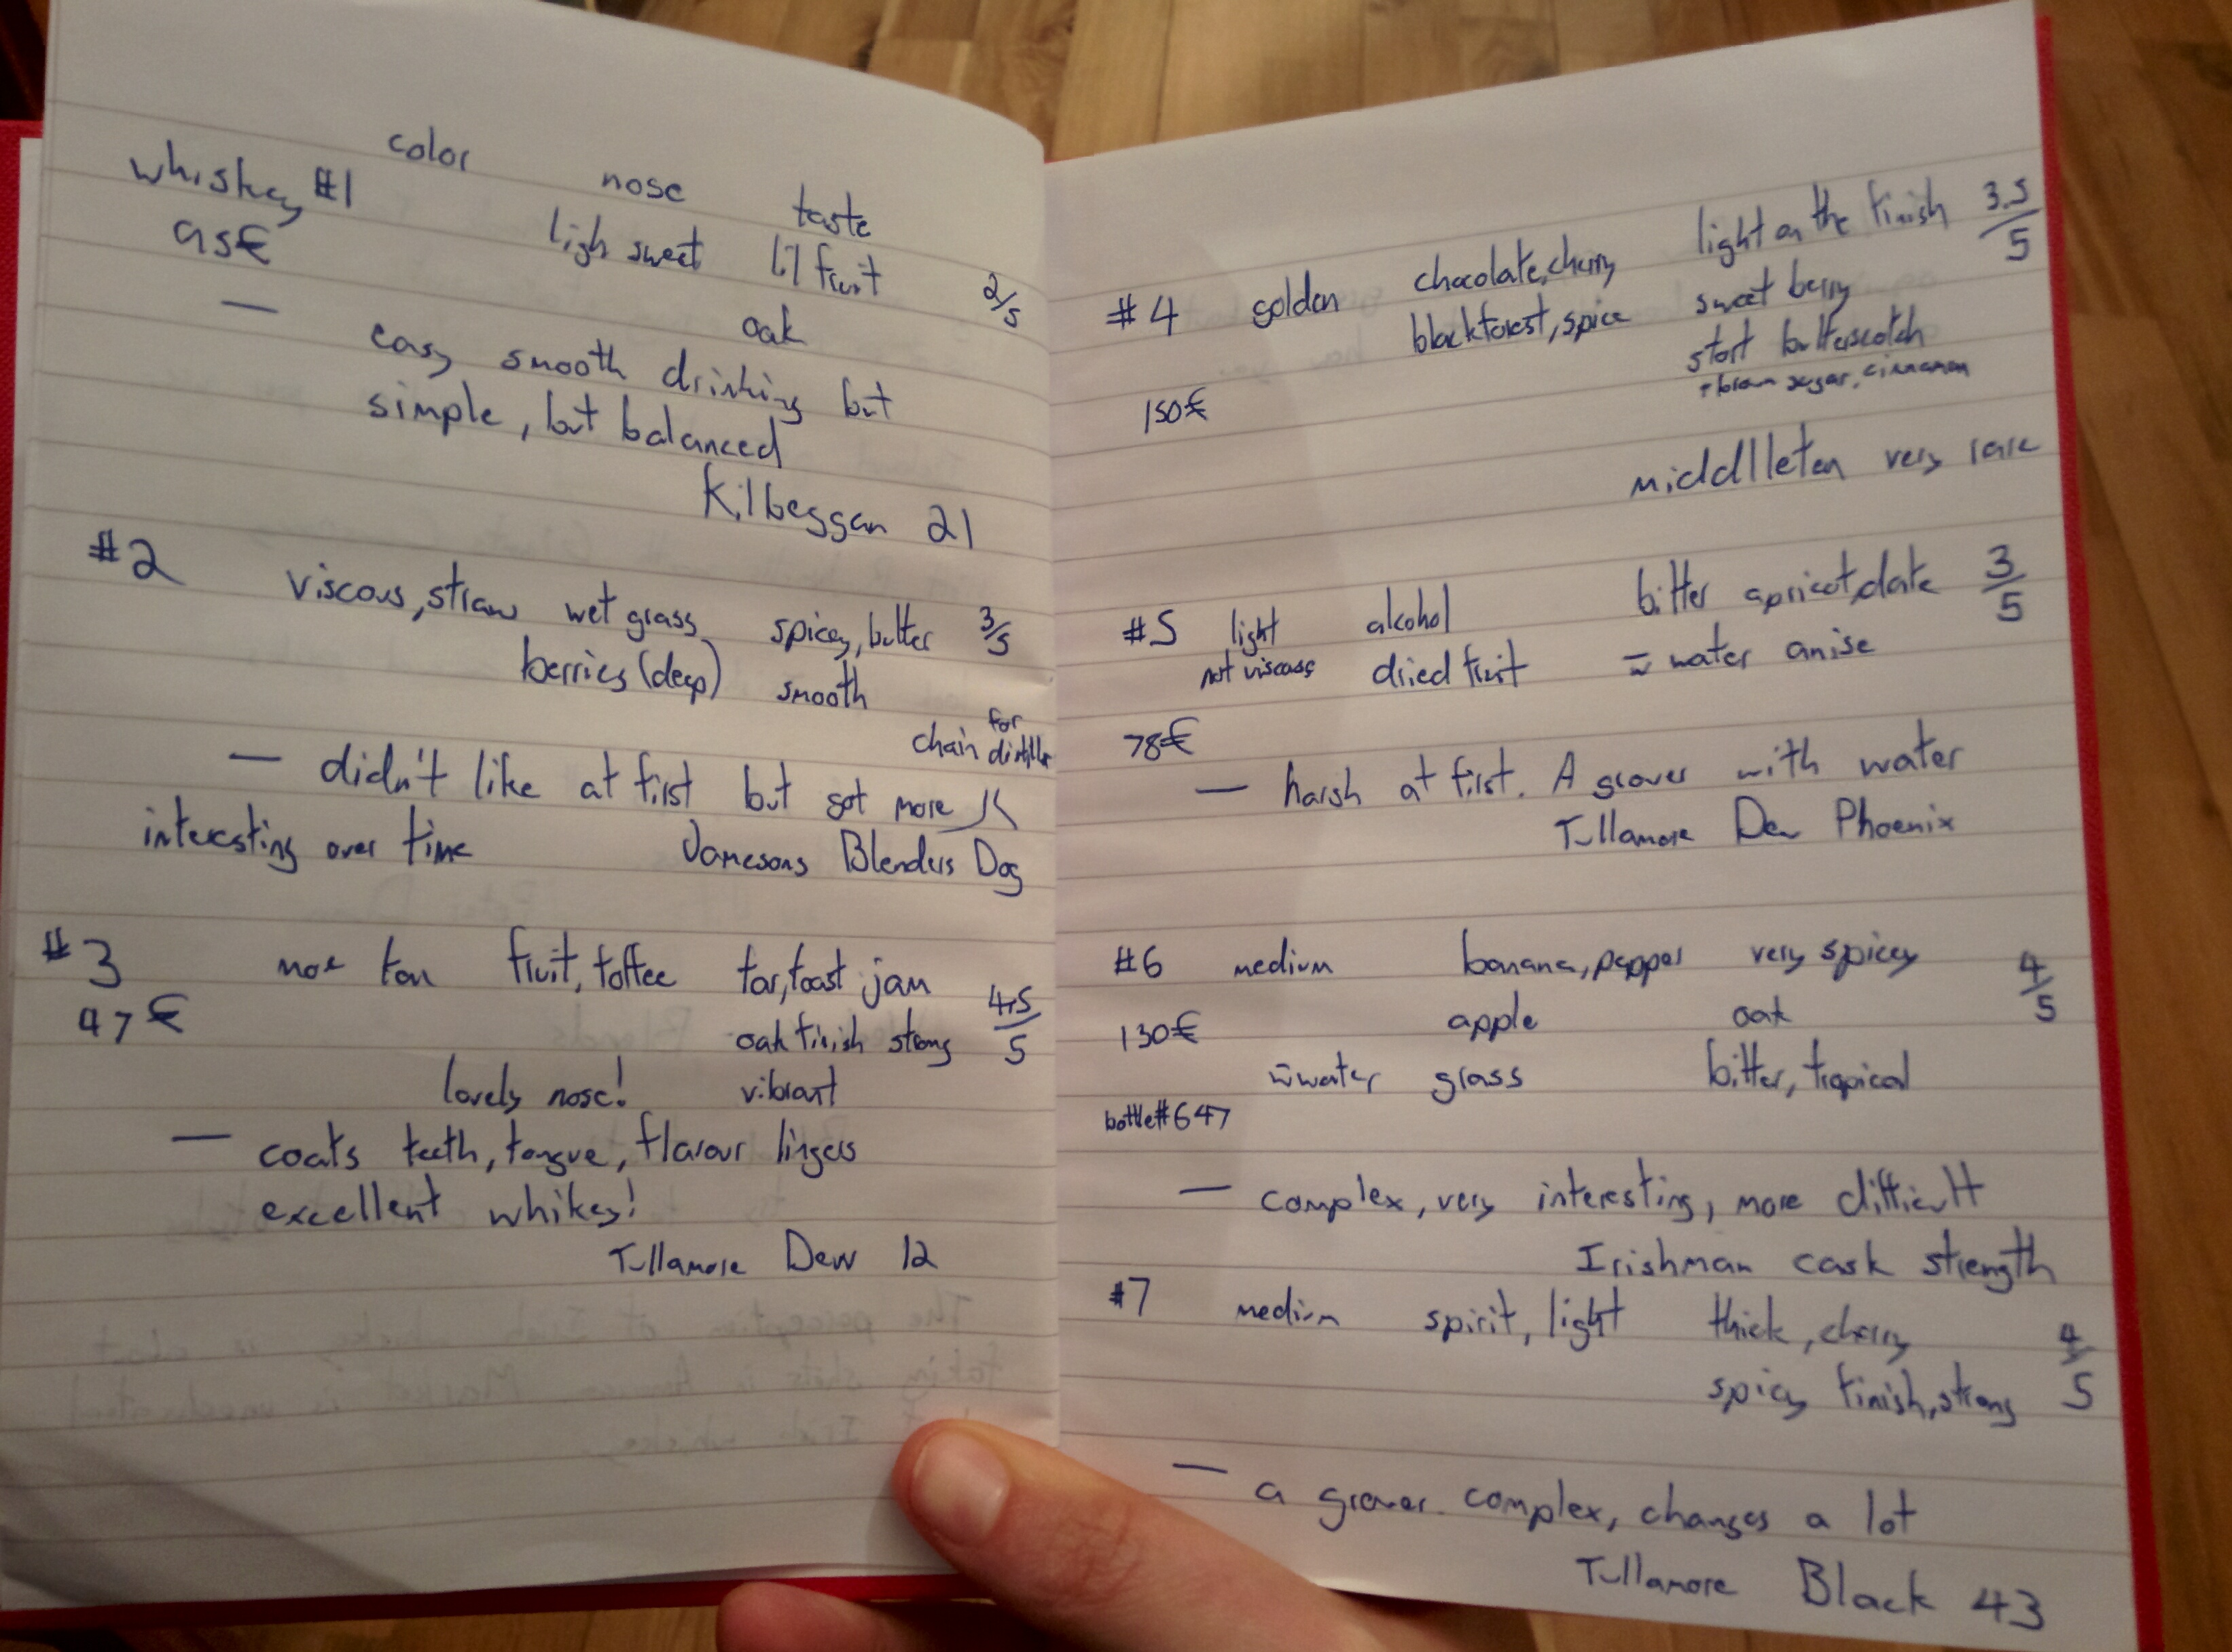 color nose taste
whiskey #1 ligh sweet lil fruit
95€ oak 2/5
— easy smooth drinking but
simple, but balanced
Kilbeggan 21
#2 viscous, straw wet grass spicey, butter 3/5
berries (deep) smooth
chain for distiller
— didn't like at first but got more
interesting over time Jamesons Blenders Dog
#3 more tan fruit, toffee tar, toast jam 4.5/5
47€ oak finish strong
lovely nose! vibrant
— coats teeth, tongue, flavour lingers
excellent whikey!
Tullamore Dew 12
#4 golden chocolate, cherry light on the finish 3.5/5
blackforest, spice sweet berry
start butterscotch
+ brown sugar, cinnamon
150€
middlleton very rare
#5 light alcohol bitter apricot, date 3/5
not viscous dried fruit w̄ water anise
78€
— harsh at first. A grower with water
Tullamore Dew Phoenix
#6 medium banana, pepper very spicey 4/5
130€ apple oak
w̄ water grass bitter, tropical
bottle #647
— complex, very interesting, more difficult
Irishman cask strength
#7 medium spirit, light thick, cherry 4/5
spicy finish, strong
— a grower. complex, changes a lot
Tullamore Black 43